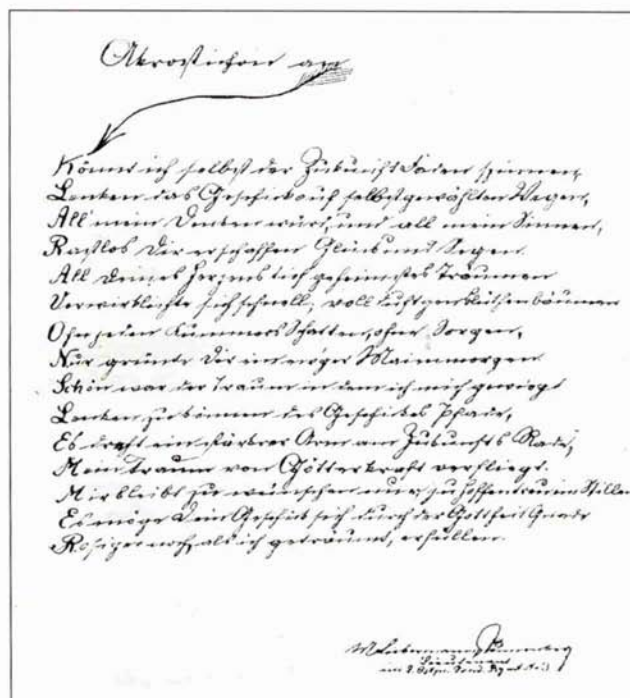 Akrostichon an
Könnt ich selbst der Zukunft Faden spinnen,
Lenken das Geschick auf selbstgewählten Wegen,
All' mein Denken würd, und all mein Sinnen,
Rastlos Dir erschaffen Glück und Segen.
All Deines Herzens tief geheimstes Träumen
Verwirklichte sich schnell; voll Luft gen Blüthenbäumen
Ohn jeden Kummers Schatten, ohne Sorgen,
Nur grünte Dir ein ew'ger Maienmorgen
Schön war der Traum in dem ich mich gewiegt
Lenken zu können des Geschickes Pfade,
Es dreht ein stärkrer Arm am Zukunfts Rade,
Mein Traum von Götterkraft verfliegt.
Mir bleibt zu wünschen nur, zu hoffen treu im Stillen
Es möge Dein Geschick sich durch der Gottheit Gnade
Rosiger noch, als ich geträumt, erfüllen.
M Liebermann
Lieutenant
im 2. Ostpr. Rgmt